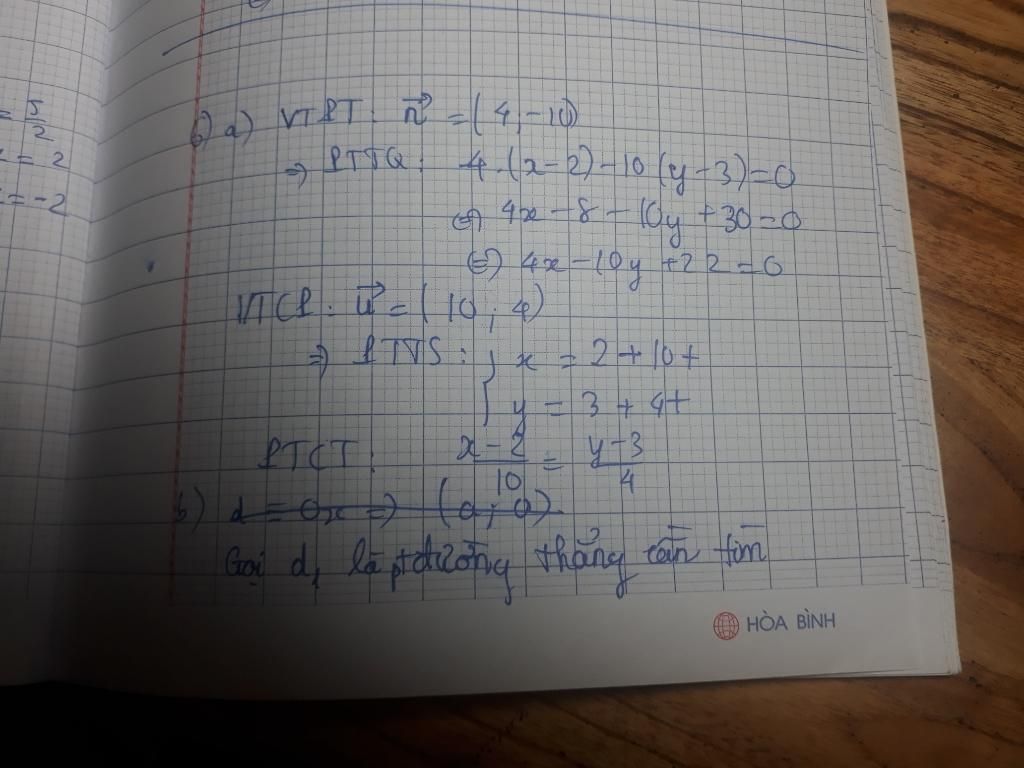 = 5/2
= 2
= -2
6) a) VTPT: n⃗ = (4,-10)
⇒ PTTQ: 4.(x-2)-10(y-3)=0
⇔ 4x-8-10y+30=0
⇔ 4x-10y+22=0
VTCP: u⃗ = (10; 4)
⇒ PTTS: { x = 2+10t
y = 3+4t
PTCT: (x-2)/10 = (y-3)/4
b) d = Ox ⇒ (0; 0)
Gọi d₁ là ptđường thẳng cần tìm
HÒA BÌNH